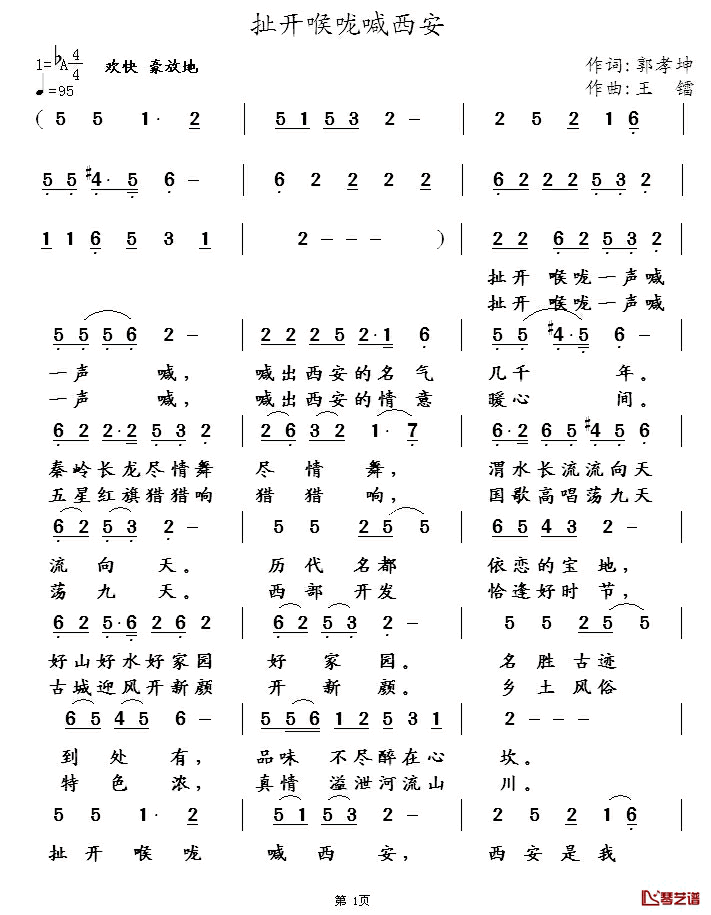 扯开喉咙喊西安
1=♭A 4/4 欢快 豪放地 作词:郭孝坤
♩=95 作曲:王 镭
( 5 5 1· 2 | 5 1 5 3 2 - | 2 5 2 1 6 |
5 5 #4· 5 6 - | 6 2 2 2 2 | 6 2 2 2 5 3 2 |
1 1 6 5 3 1 | 2 - - ) | 2 2 6 2 5 3 2 |
扯开 喉咙一声喊
扯开 喉咙一声喊
5 5 5 6 2 - | 2 2 2 5 2·1 6 | 5 5 #4·5 6 - |
一声 喊, 喊出西安的名气 几千 年。
一声 喊, 喊出西安的情意 暖心 间。
6 2 2·2 5 3 2 | 2 6 3 2 1· 7 | 6·2 6 5 #4 5 6 |
秦岭长龙尽情舞 尽 情 舞, 渭水长流流向天
五星红旗猎猎响 猎 猎 响, 国歌高唱荡九天
6 2 5 3 2 - | 5 5 2 5 5 | 6 5 4 3 2 - |
流 向 天。 历 代 名 都 依恋的宝地,
荡 九 天。 西 部 开 发 恰逢好时节,
6 2 5·6 2 6 2 | 6 2 5 3 2 - | 5 5 2 5 5 |
好山好水好家园 好 家 园。 名 胜 古 迹
古城迎风开新颜 开 新 颜。 乡 土 风 俗
6 5 4 5 6 - | 5 5 6 1 2 5 3 1 | 2 - - |
到 处 有, 品味 不尽醉在心 坎。
特 色 浓, 真情 溢泄河流山 川。
5 5 1· 2 | 5 1 5 3 2 - | 2 5 2 1 6 |
扯 开 喉 咙 喊 西 安, 西 安 是 我
第 1页
琴艺谱